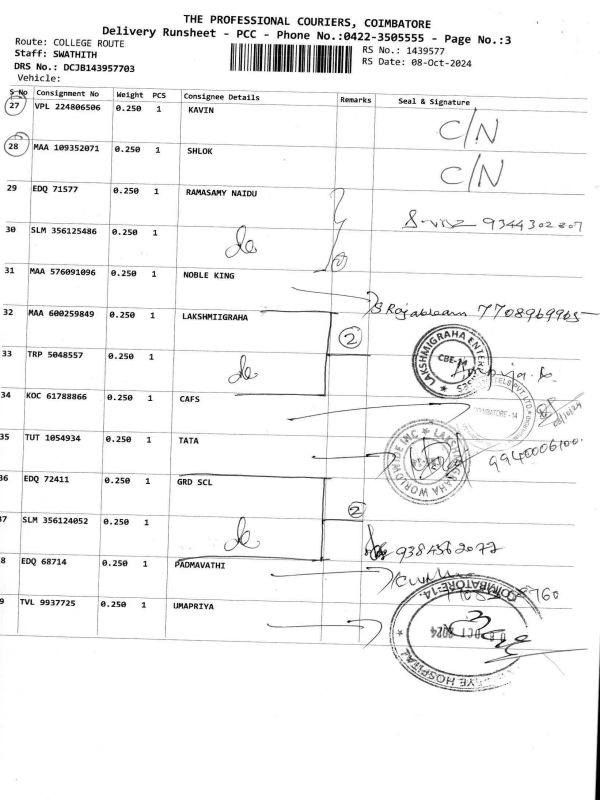 THE PROFESSIONAL COURIERS, COIMBATORE
Delivery Runsheet - PCC - Phone No.:0422-3505555 - Page No.:3
Route: COLLEGE ROUTE
RS No.: 1439577
Staff: SWATHITH
RS Date: 08-Oct-2024
DRS No.: DCJB143957703
Vehicle:
S No Consignment No Weight PCS Consignee Details Remarks Seal & Signature
27 VPL 224806506 0.250 1 KAVIN C/N
28 MAA 109352071 0.250 1 SHLOK C/N
29 EDQ 71577 0.250 1 RAMASAMY NAIDU 9344302807
30 SLM 356125486 0.250 1 do
31 MAA 576091096 0.250 1 NOBLE KING
32 MAA 600259849 0.250 1 LAKSHMIIGRAHA 7708969965
2
33 TRP 5048557 0.250 1 do LAKSHMIGRAHA CBE-14
34 KOC 61788866 0.250 1 CAFS COIMBATORE - 14
35 TUT 1054934 0.250 1 TATA LAKSHMIGRAHA WORLDWIDE INC 9940006100
36 EDQ 72411 0.250 1 GRD SCL
2
37 SLM 356124052 0.250 1 do 9384562077
8 EDQ 68714 0.250 1 PADMAVATHI
9 TVL 9937725 0.250 1 UMAPRIYA COIMBATORE-14. OCT 2024 EYE HOSPITAL